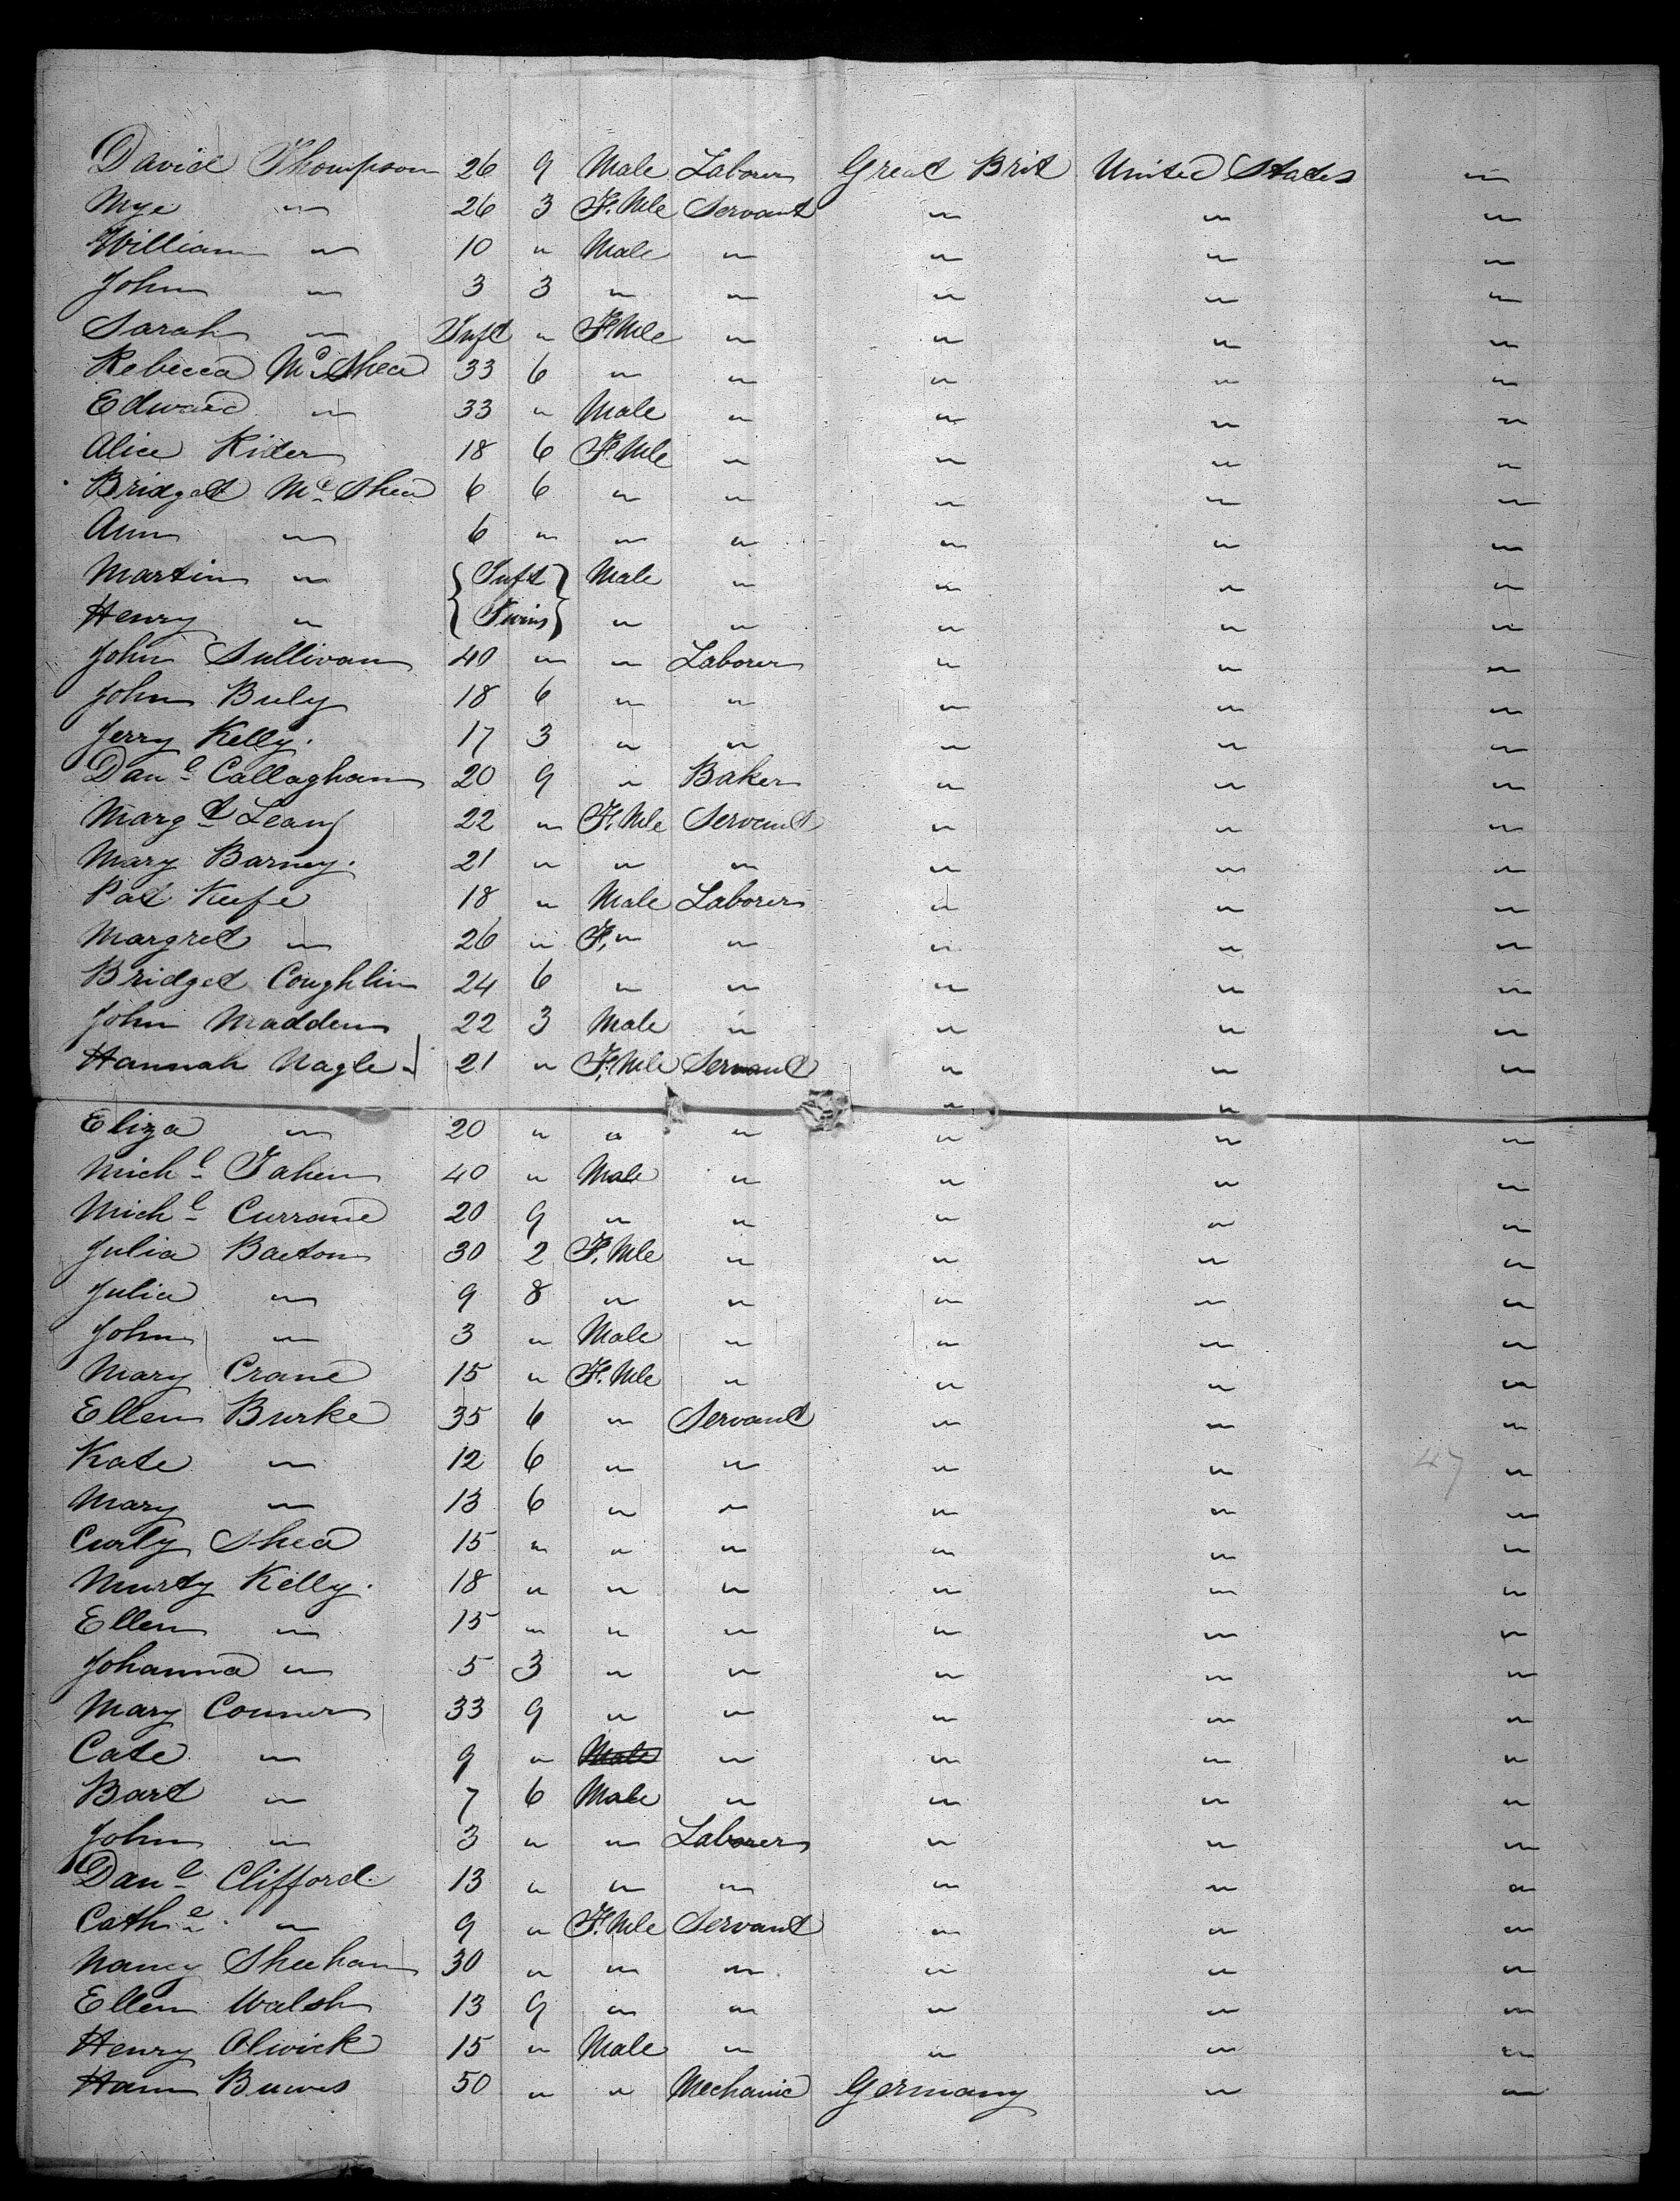 David Thompson 26 9 Male Laborer Great Brit United States "
Mye " 26 3 F.Mle Servant " " "
William " 10 " Male " " " "
John " 3 3 " " " " "
Sarah " Inft " F.Mle " " " "
Rebecca Mc Shea 33 6 " " " " "
Edward " 33 " Male " " " "
Alice Rider 18 6 F.Mle " " " "
Bridget Mc Shea 6 6 " " " " "
Ann " 6 " " " " " "
Martin " { Inft } Male " " " "
Henry " { Twins } " " " " "
John Sullivan 40 " " Laborer " " "
John Buly 18 6 " " " " "
Jerry Kelly. 17 3 " " " " "
Danl Callaghan 20 9 " Baker " " "
Margt Leany 22 " F.Mle Servant " " "
Mary Barney. 21 " " " " " "
Pat Keefe 18 " Male Laborer " " "
Margret " 26 " F." " " " "
Bridget Coughlin 24 6 " " " " "
John Madden 22 3 Male " " " "
Hannah Nagle 21 " F.Mle Servant " " "
" "
Eliza " 20 " " " " " "
Michl Fahen 40 " Male " " " "
Michl Currane 20 9 " " " " "
Julia Baeton 30 2 F.Mle " " " "
Julia " 9 8 " " " " "
John " 3 " Male " " " "
Mary Crane 15 " F.Mle " " " "
Ellen Burke 35 6 " Servant " " "
Kate " 12 6 " " " " 47 "
Mary " 13 6 " " " " "
Curly Shea 15 " " " " " "
Murty Kelly. 18 " " " " " "
Ellen " 15 " " " " " "
Johanna " 5 3 " " " " "
Mary Conner 33 9 " " " " "
Cate " 9 " Male " " " "
Bart " 7 6 Male " " " "
John " 3 " " Laborer " " "
Danl Clifford. 13 " " " " " "
Cathe " 9 " F.Mle Servant " " "
Nancy Sheehan 30 " " " " " "
Ellen Walsh 13 9 " " " " "
Henry Olwick 15 " Male " " " "
Hann 50 " " Mechanic Germany " "